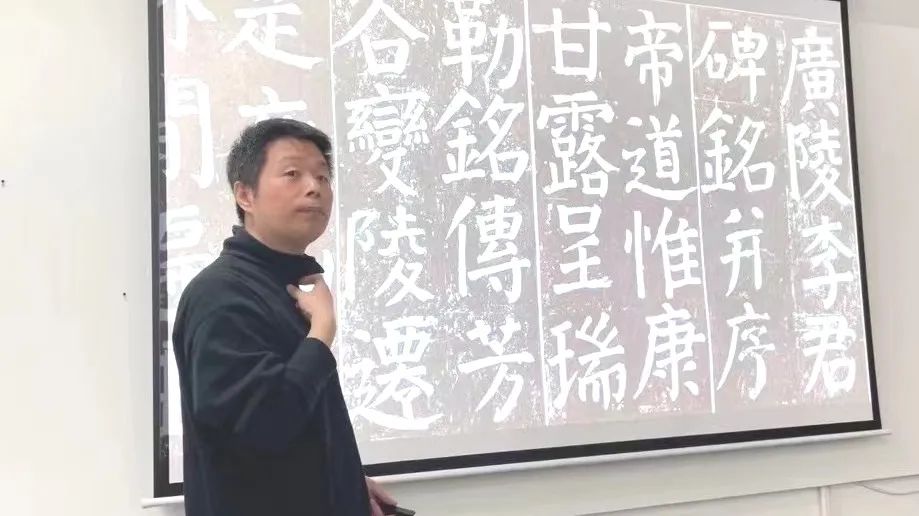 廣陵李君
碑銘并序
帝道惟康
甘露呈瑞
勒銘傳芳
谷變陵遷
是